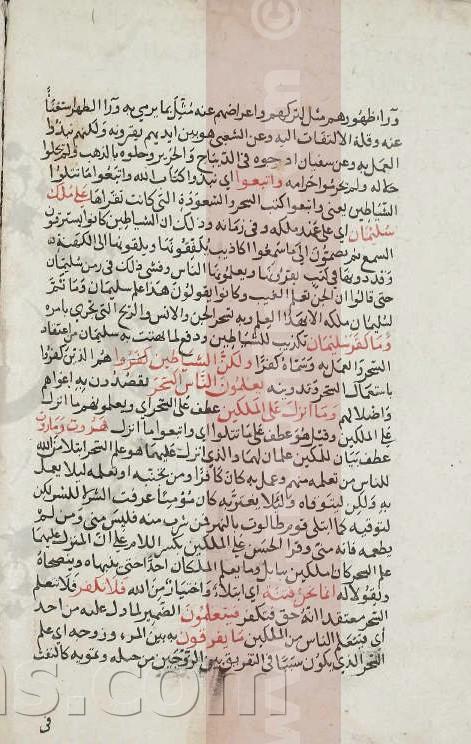 ورا ظهورهم مثل لتركهم واعراضهم عنه مثل بما يرمى به ورا الظهر استغنا
عنه وقلة الالتفات اليه وعن الشعبى هو بين ايديهم يقرونه ولكنهم نبذوا
العمل به وعن سفيان ادرجوه فى الديباج والحرير وحلوه بالذهب ولم يحلوا
حلاله ولم يحرموا حرامه واتبعوا اى نبذوا كتاب الله واتبعوا ما تتلوا
الشياطين يعنى واتبعوا كتب السحر والشعوذة التى كانت تقراها على ملك
سليمان اى على عهد ملكه وفى زمانه وذلك ان الشياطين كانوا يسترقون
السمع ثم يضمون الى ما سمعوا اكاذيب يلفقونها ويلقونها الى الكهنة
وقد دونوها فى كتب يقرونها ويعلمونها الناس وفشى ذلك فى زمن سليمان
حتى قالوا ان الجن تعلم الغيب وكانوا يقولون هذا علم سليمان وما تم
لسليمان ملكه الا بهذا العلم وبه تسخر الجن والانس والريح التى تجرى بامره
وما كفر سليمان تكذيب للشياطين ودفع لما بهتت به سليمان من اعتقاد
السحر والعمل به وسماه كفرا ولكن الشياطين كفروا هم الذين كفروا
باستعمال السحر وتدوينه يعلمون الناس السحر يقصدون به اغواهم
واضلالهم وما انزل على الملكين عطف على السحر اى ويعلمونهم ما انزل
على الملكين وقيل هو عطف على ما تتلوا اى واتبعوا ما انزل هروت وماروت
عطف بيان للملكين علمان لهما والذى انزل عليهما هو علم السحر ابتلا من الله
للناس من تعلمه منهم وعمل به كان كافرا ومن تجنبه او تعلمه ليلا يعمل
به ولكن ليتوقاه وليلا يغتر به كان مؤمنا عرفت الشر لا للشر لكن
لتوقيه كما ابتلى قوم طالوت بالنهر فمن شرب منه فليس منى ومن لم
يطعمه فانه منى وقرا الحسن على الملكين بكسر اللام على ان المنزل عليهما
علم السحر كان ملكين ببابل وما يعلم الملكان احدا حتى ينبهاه وينصحاه
ويقولا له انما نحن فتنة اى ابتلا واختبار من الله فلا تكفر فلا تتعلم
السحر معتقدا انه حق فتكفر فيتعلمون الضمير لما دل عليه من احد
اى فيتعلم الناس من الملكين ما يفرقون به بين المرء وزوجه اى علم
السحر الذى يكون سببا فى التفريق بين الزوجين من حيله وتمويه كالنفث
فى